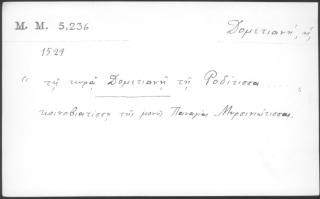 M. M. 5,236
Δομετιανή, ἡ
1521
"τῇ κυρᾷ Δομετιανῇ τῇ Ροδίτισσα . . . .
κοινοβιατίσσῃ τῆς μονῆς Παναγίας Μυρσινιώτισσας.